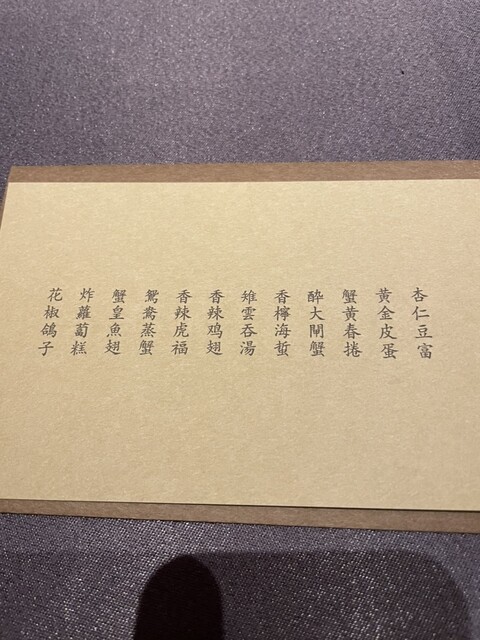 杏仁豆富
黃金皮蛋
蟹黃春捲
醉大閘蟹
香檸海蜇
雉雲吞湯
香辣鸡翅
香辣虎福
鴛鴦蒸蟹
蟹皇魚翅
炸蘿蔔糕
花椒鴿子